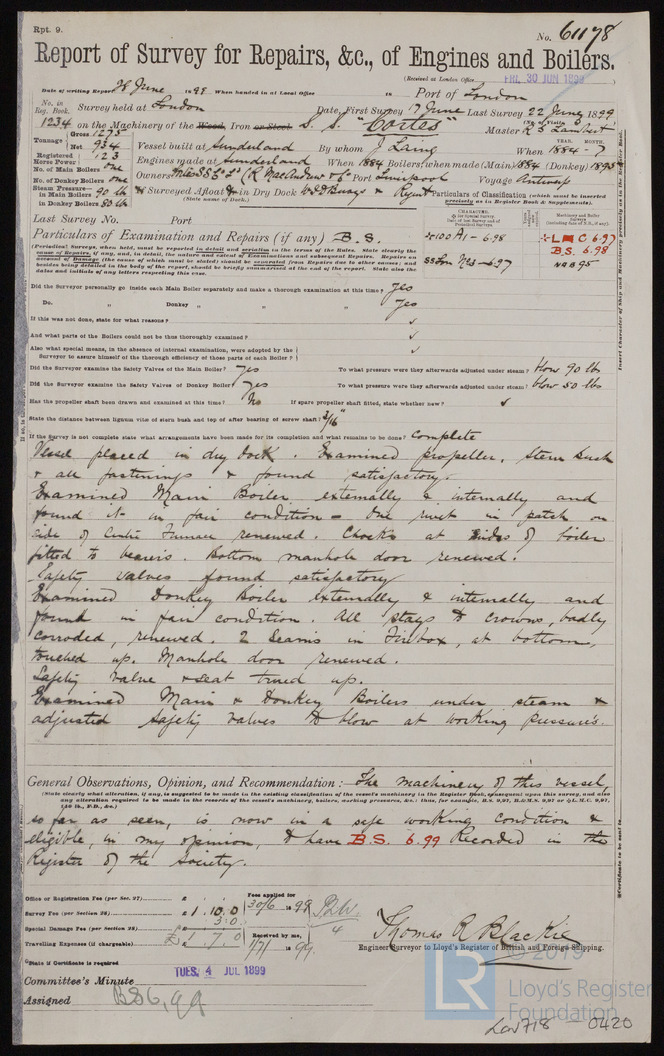 Rpt. 9.
No. 61178
Report of Survey for Repairs, &c., of Engines and Boilers.
(Received at London Office FRI. 30 JUN 1899
Date of writing Report 28 June 1899 When handed in at Local Office Port of London
No. in Reg. Book. Survey held at London Date, First Survey 17 June Last Survey 22 June 1899
1234 on the Machinery of the Wood, Iron or Steel S. S. "Cortes" Master
Tonnage Gross 1275
Net 934
Vessel built at Sunderland By whom J Laing When 1884 - 7
Registered Horse Power 123
Engines made at Sunderland When 1884 Boilers, when made (Main) 1884 (Donkey) 1895
No. of Main Boilers one
No. of Donkey Boilers one
Owners (R MacAndrew & Co Port Liverpool Voyage Antwerp
Steam Pressure
in Main Boilers 90 lb
in Donkey Boilers 50 lb
If Surveyed Afloat or in Dry Dock
(State name of Dock.)
Particulars of Classification (which must be inserted precisely as in Register Book & Supplements).
Last Survey No. Port
Particulars of Examination and Repairs (if any) B. S.
100 A1 - 6.98
L M C 6.97
B. S. 6.98
SS Lon No 3 - 6.97
NDB 95
Did the Surveyor personally go inside each Main Boiler separately and make a thorough examination at this time? Yes
Do. " Donkey " " " Yes
If this was not done, state for what reasons?
And what parts of the Boilers could not be thus thoroughly examined?
Also what special means, in the absence of internal examination, were adopted by the
Surveyor to assure himself of the thorough efficiency of those parts of each Boiler?
Did the Surveyor examine the Safety Valves of the Main Boiler? Yes To what pressure were they afterwards adjusted under steam? blow 90 lbs
Did the Surveyor examine the Safety Valves of Donkey Boiler? Yes To what pressure were they afterwards adjusted under steam? blow 50 lbs
Has the propeller shaft been drawn and examined at this time? No If spare propeller shaft fitted, state whether new?
State the distance between lignum vitæ of stern bush and top of after bearing of screw shaft? 3/16"
If the Survey is not complete state what arrangements have been made for its completion and what remains to be done? Complete
Vessel placed in dry dock. Examined propeller, stern bush
& all fastenings & found satisfactory.
Examined Main Boiler externally & internally and
found it in fair condition - One rivet in patch on
side of Centre Furnace renewed. Chocks at sides of boiler
fitted to bearers. Bottom manhole door renewed.
Safety valves found satisfactory
Examined Donkey Boiler externally & internally and
found in fair condition. All stays to crowns, badly
corroded, renewed. 2 seams in Firebox, at bottom,
touched up. Manhole door renewed.
Safety valve & seat trued up.
Examined Main & Donkey Boilers under steam &
adjusted safety valves to blow at working pressures.
General Observations, Opinion, and Recommendation:— The machinery of this vessel
(State clearly what alteration, if any, is suggested to be made in the existing classification of the vessel's machinery in the Register Book, consequent upon this survey, and also
any alteration required to be made in the records of the vessel's machinery, boilers, working pressures, &c.
so far as seen, is now in a safe working condition &
eligible, in my opinion, to have B. S. 6.99 Recorded in the
Register of the Society.
Office or Registration Fee (per Sec. 27)... £
Survey Fee (per Section 28) £ 1 . 10 . 0
3 : 0
Special Damage Fee (per Section 28) £ 1 7 0
Travelling Expenses (if chargeable) £
Fees applied for 30/6 1899
Received by me,
Thomas R Blackie
Engineer Surveyor to Lloyd's Register of British and Foreign Shipping.
State if Certificate is required
Committee's Minute TUES. 4 JUL 1899
Assigned BS 6,99
© 2019
LR
Lloyd's Register
Foundation
Lon718 - 0420